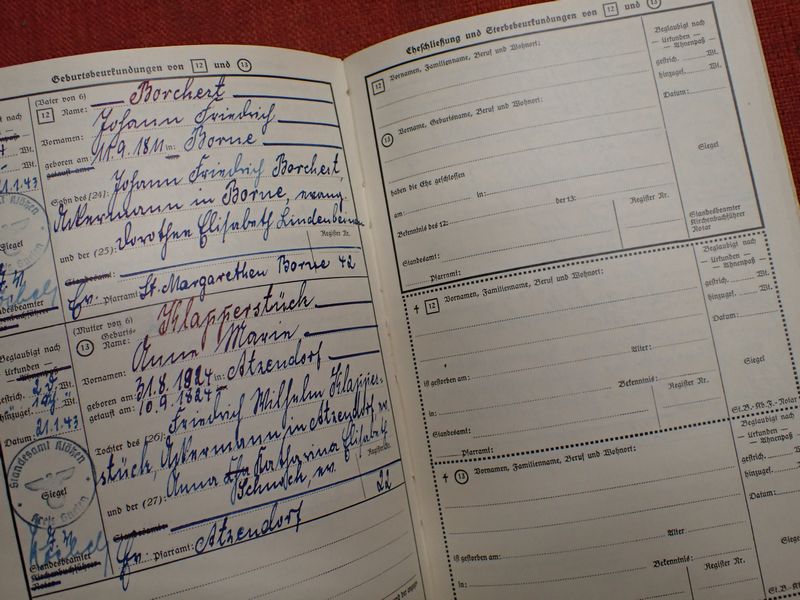 Geburtsbeurkundungen von 12 und 13
(Vater von 6)
12 Name: Borchert
Vornamen: Johann Friedrich
geboren am 11.9.1811 in: Borne
getauft am:
Sohn des (24): Johann Friedrich Borchert,
Ackermann in Borne, evang.
und der (25): Dorothee Elisabeth Lindenbein
Register Nr.
Standesamt:
Ev. Pfarramt: St. Margarethen Borne 42
1.1.43
Siegel
(Mutter von 6)
13 Geburts-Name: Klapperstück
Vornamen: Anne Marie
geboren am: 31.8.1824 in: Atzendorf
getauft am: 10.9.1824
Tochter des (26): Friedrich Wilhelm Klapper-
stück, Ackermann in Atzendorf u.
und der (27): Anna Katharina Elisabeth
Schnock, ev.
Register Nr.
Standesamt: 22
Ev. Pfarramt: Atzendorf
Beglaubigt nach
Urkunden
gestrich. Wt.
hinzugef. Wt.
Datum: 21.1.43
Standesamt
Siegel
Standesbeamter
Kirchenbuchführer
Notar
Eheschließung und Sterbebeurkundungen von 12 und 13
12 Vornamen, Familienname, Beruf und Wohnort:
13 Vorname, Geburtsname, Beruf und Wohnort:
haben die Ehe geschlossen
am: in:
Bekenntnis des 12: der 13:
Register Nr.
Standesamt:
Pfarramt:
Beglaubigt nach
— Urkunden
— Ahnenpaß —
gestrich. Wt.
hinzugef. Wt.
Datum:
Siegel
Standesbeamter
Kirchenbuchführer
Notar
† 12 Vornamen, Familienname, Beruf und Wohnort:
Alter:
ist gestorben am:
in: Bekenntnis: Register Nr.
Standesamt:
Pfarramt:
Beglaubigt nach
— Urkunden
— Ahnenpaß —
gestrich. Wt.
hinzugef. Wt.
Datum:
Siegel
St.B.-Kb.F.-Notar
† 13 Vornamen, Familienname, Beruf und Wohnort:
Alter
ist gestorben am:
Bekenntnis: Register Nr.
in:
Beglaubigt nach
— Urkunden
— Ahnenpaß
gestrich.
hinzugef.
Datum:
Siegel